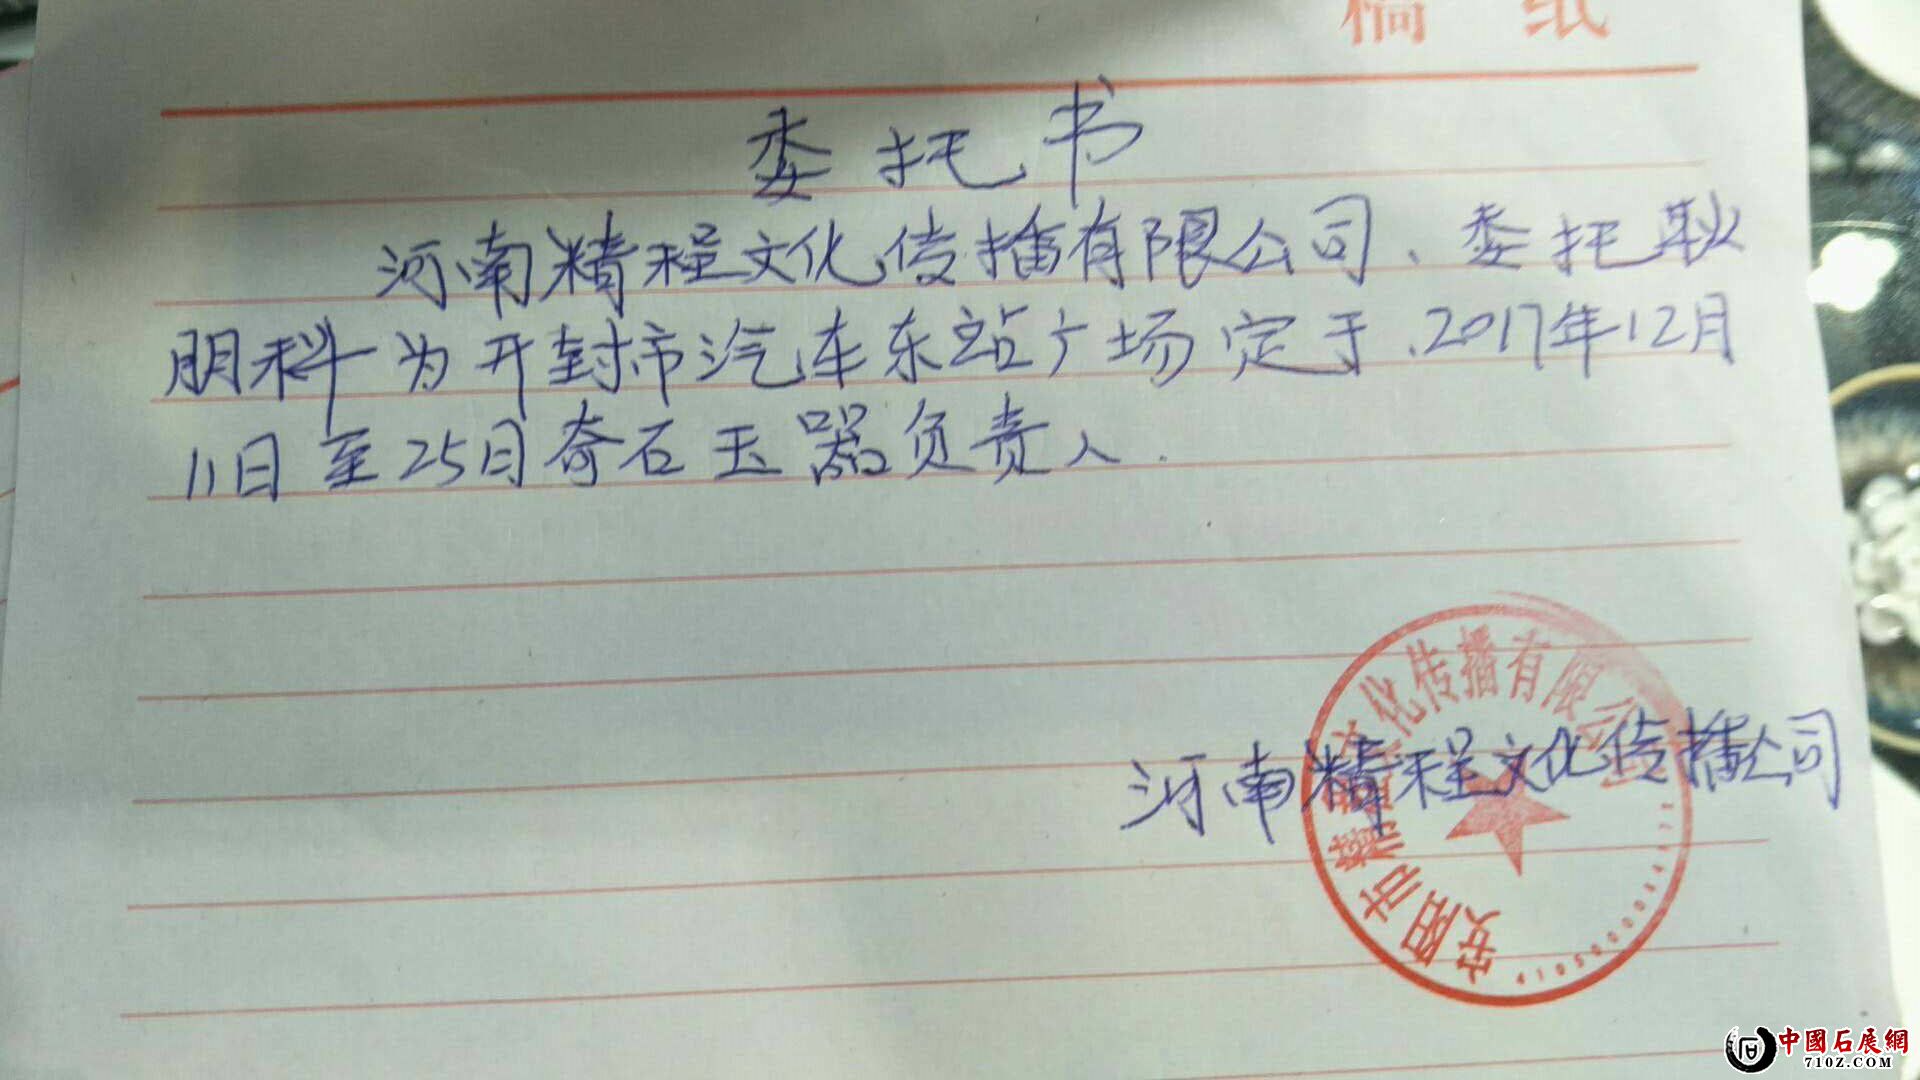 稿 纸
委托书
河南精程文化传播有限公司、委托耿
朋科为开封市汽车东站广场定于.2017年12月
11日至25日奇石玉器负责人.
河南精程文化传播公司
安阳市精程文化传播有限公司
中國石展網
710Z.COM